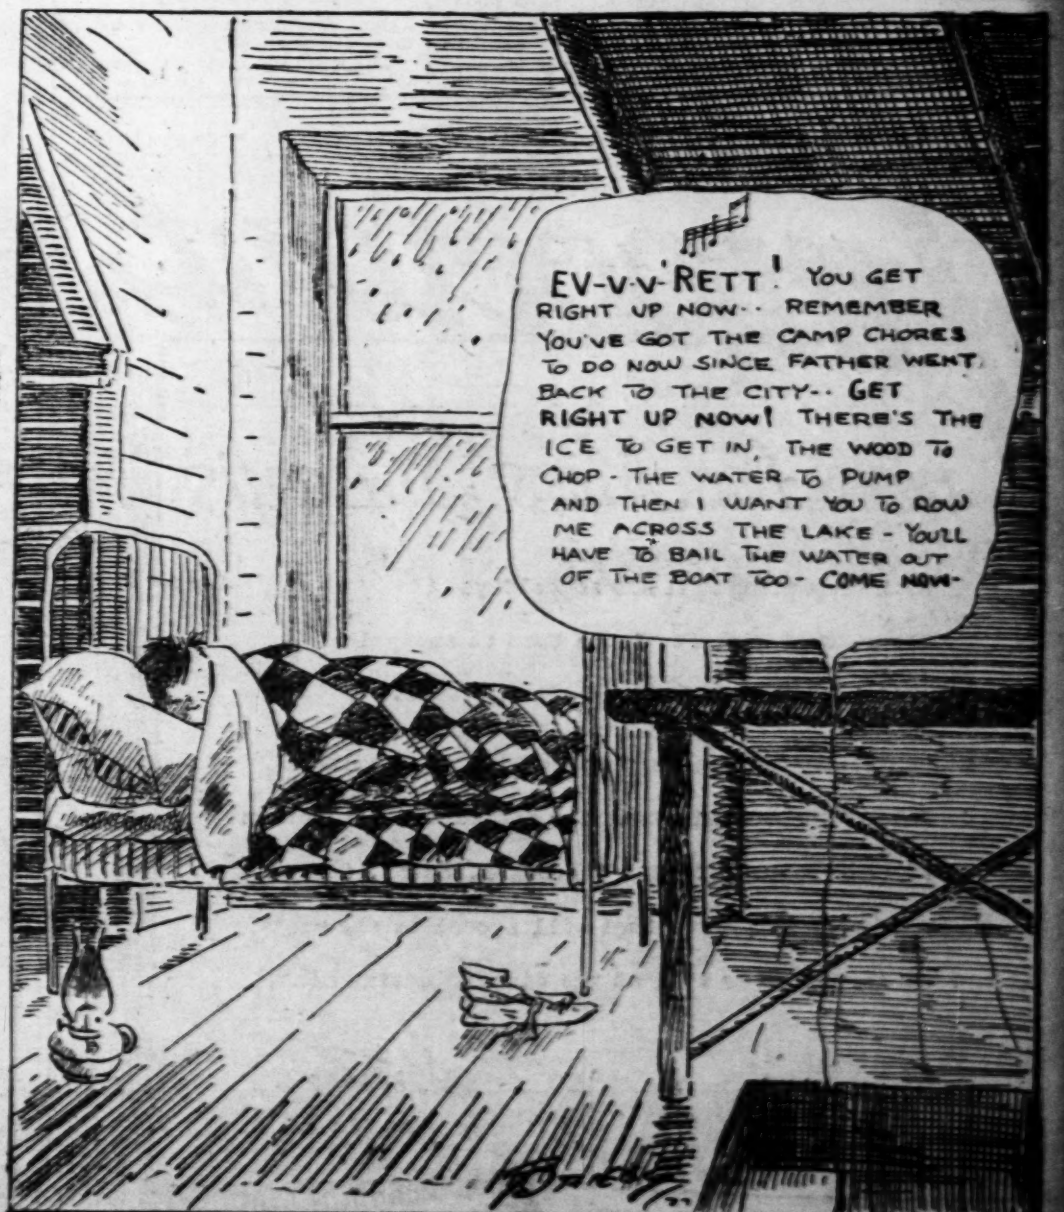 EV-V-V-'RETT! YOU GET
RIGHT UP NOW-- REMEMBER
YOU'VE GOT THE CAMP CHORES
TO DO NOW SINCE FATHER WENT
BACK TO THE CITY-- GET
RIGHT UP NOW! THERE'S THE
ICE TO GET IN, THE WOOD TO
CHOP - THE WATER TO PUMP
AND THEN I WANT YOU TO ROW
ME ACROSS THE LAKE - YOU'LL
HAVE TO BAIL THE WATER OUT
OF THE BOAT TOO - COME NOW-